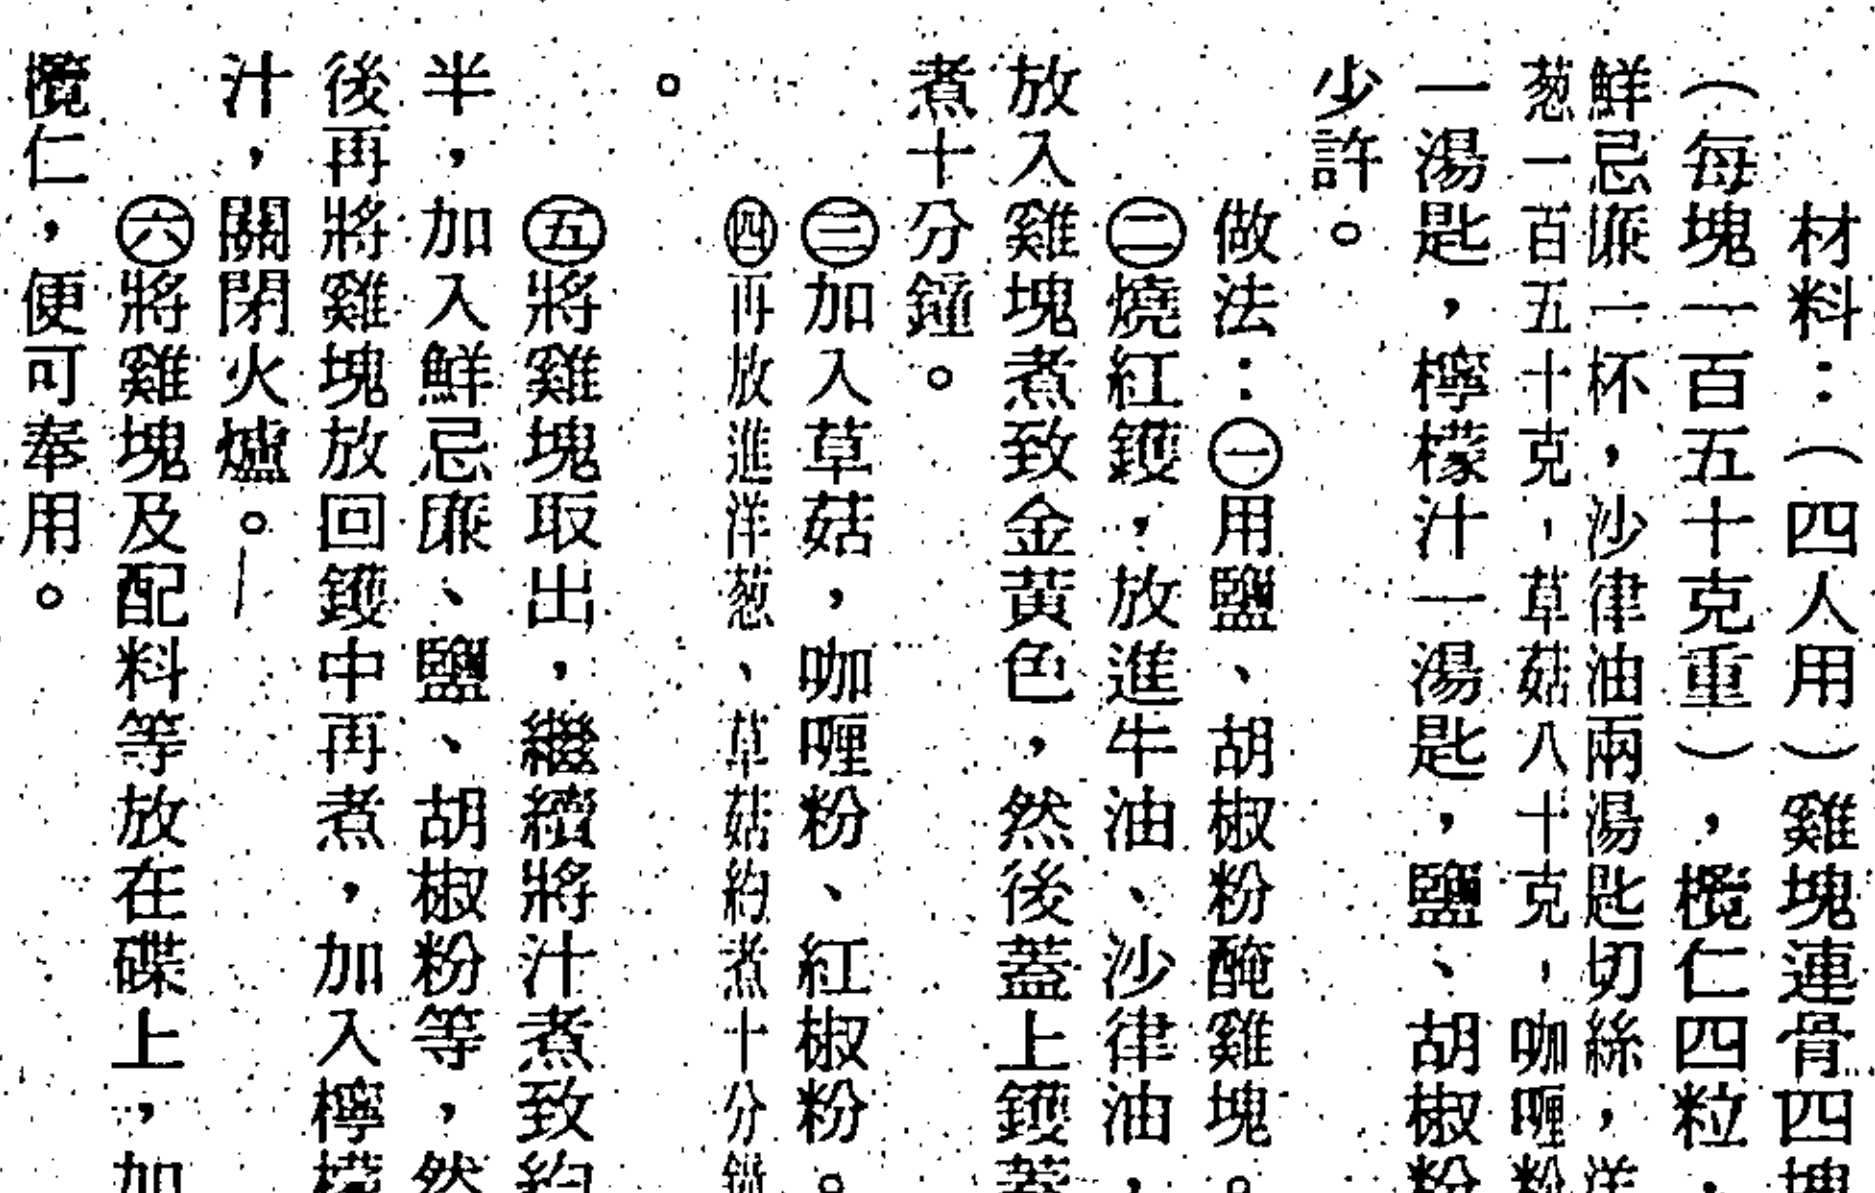 材料：（四人用）雞塊連骨四塊
（每塊一百五十克重），欖仁四粒，
鮮忌廉一杯，沙律油兩湯匙切絲，洋
葱一百五十克，草菇八十克，咖喱粉
一湯匙，檸檬汁一湯匙，鹽、胡椒粉
少許。
做法：㊀用鹽、胡椒粉醃雞塊。
㊁燒紅鑊，放進牛油、沙律油，
放入雞塊煮致金黃色，然後蓋上鑊蓋
煮十分鐘。
㊂加入草菇，咖喱粉、紅椒粉。
㊃再放進洋葱、草菇約煮十分鐘
。
㊄將雞塊取出，繼續將汁煮致約
半，加入鮮忌廉、鹽、胡椒粉等，然
後再將雞塊放回鑊中再煮，加入檸檬
汁，關閉火爐。
㊅將雞塊及配料等放在碟上，加
欖仁，便可奉用。